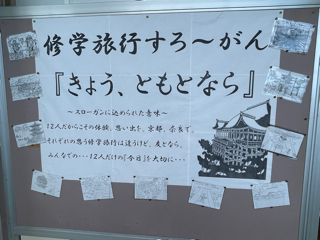 修学旅行すろ～がん
『きょう、ともとなら』
～スローガンに込められた意味～
12人だからこその体験、思い出を、京都、奈良で。
それぞれの思う修学旅行は違うけど、友となら。
みんなでの・・・12人だけの「今日」を大切に・・・